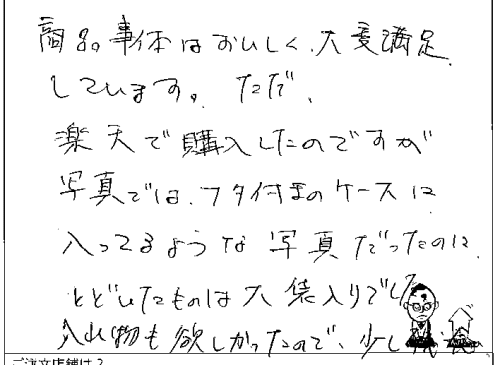 商品。事体はおいしく、大変満足
しています。ただ、
楽天で購入したのですが
写真では、フタ付きのケースに
入ってるような写真だったのに、
とどいたものは大袋入りでした
入れ物も欲しかったので、少し
ご注文店舗は?